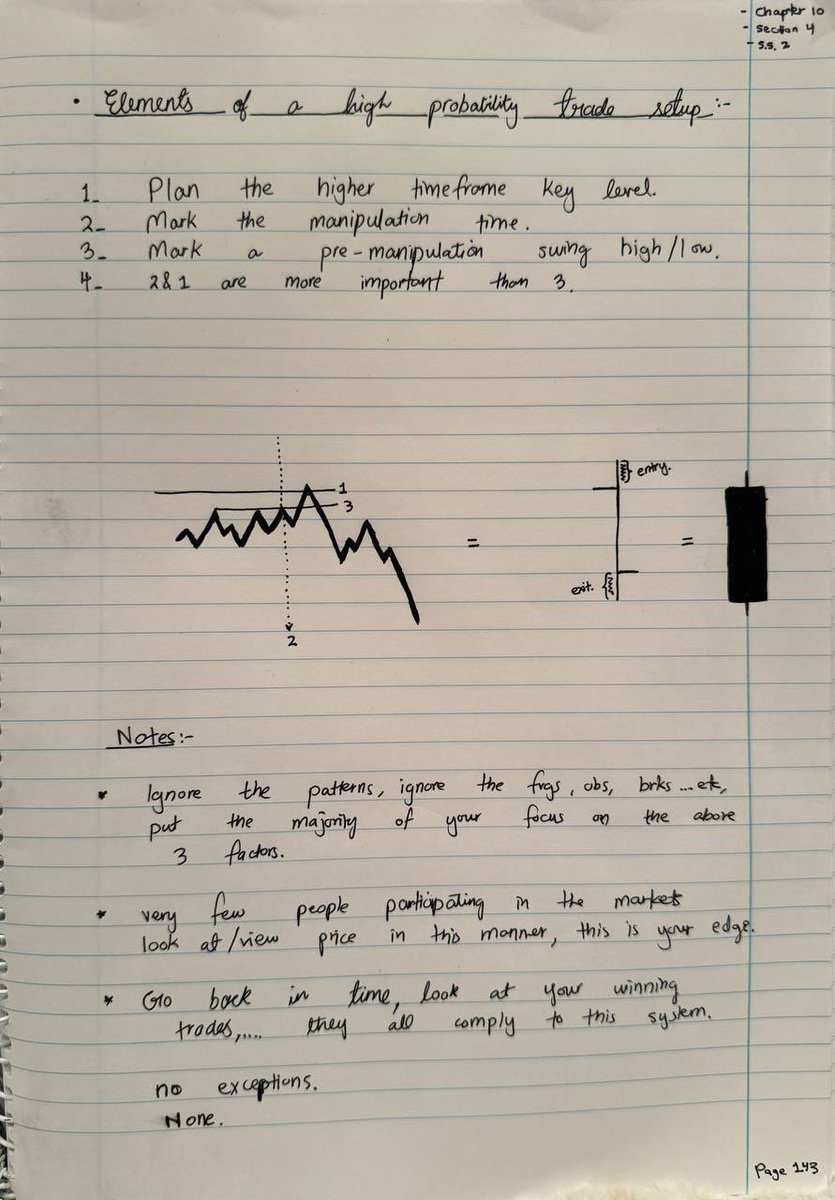 - Chapter 10
- Section 4
- S.S. 2
• Elements of a high probability trade setup:-
1- Plan the higher timeframe key level.
2- Mark the manipulation time.
3- Mark a pre-manipulation swing high/low.
4- 2&1 are more important than 3.
1
3
2
=
entry.
exit.
=
Notes:-
* Ignore the patterns, ignore the fvgs, obs, brks ...etc,
put the majority of your focus on the above
3 factors.
* very few people participating in the markets
look at/view price in this manner, this is your edge.
* Go back in time, look at your winning
trades,.... they all comply to this system.
no exceptions.
None.
Page 143